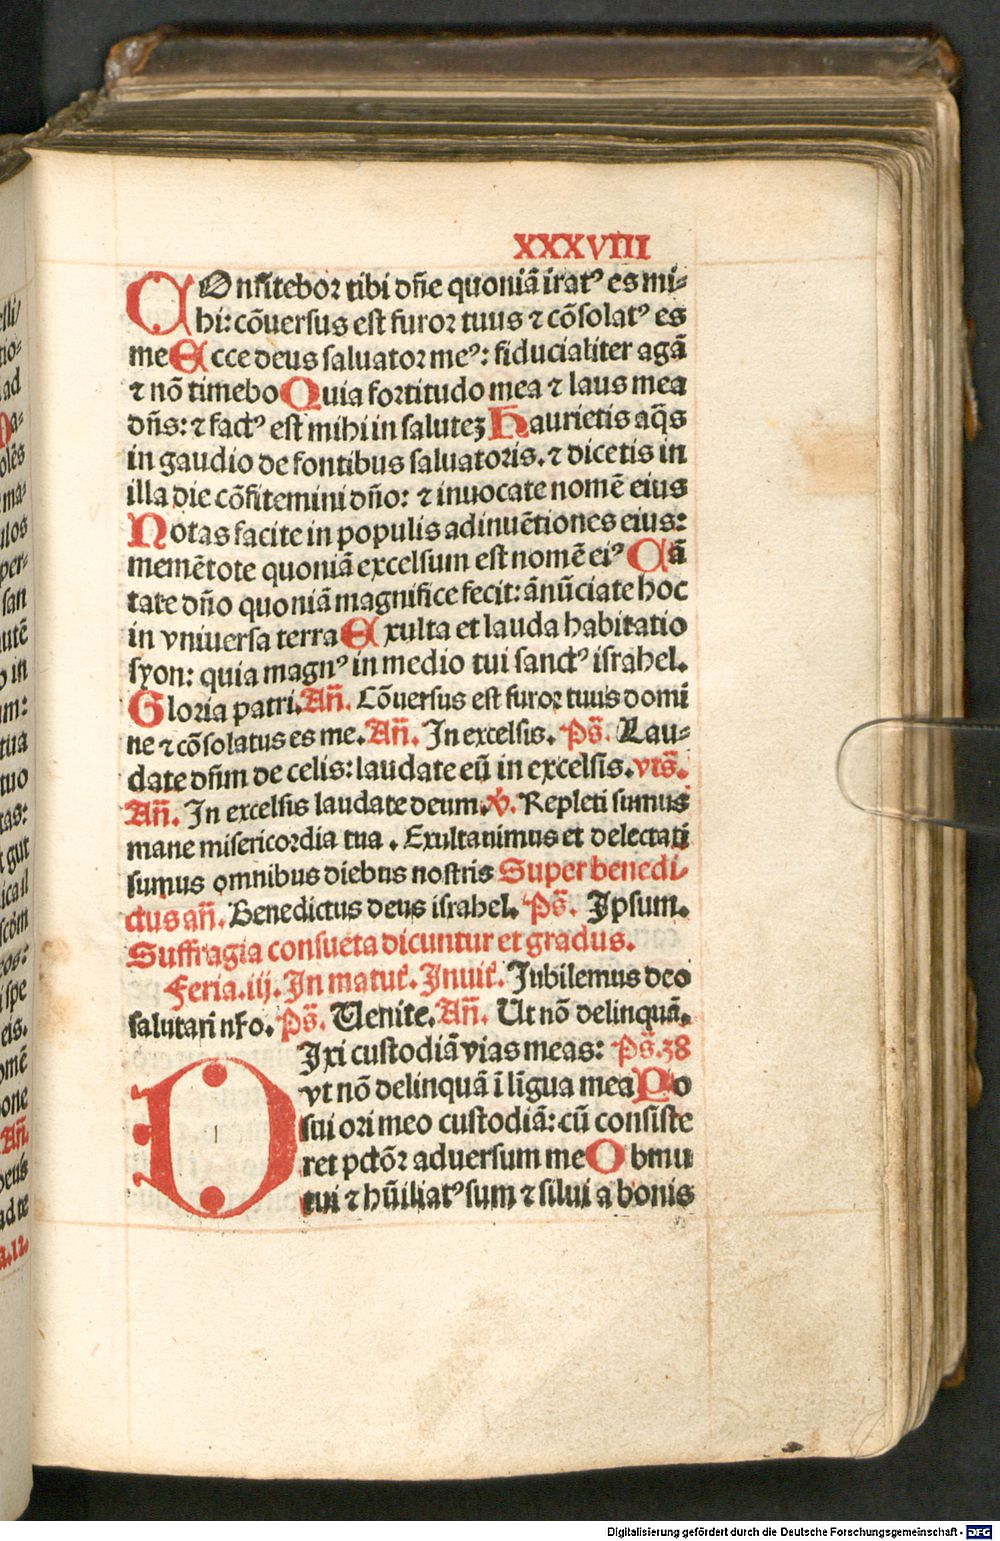 XXXVIII
COnfitebor tibi dñe quoniã iratꝰ es mi-
hi: cõuersus est furor tuus ⁊ cõsolatꝰ es
me Ecce deus saluator meꝰ: fiducialiter agã
⁊ nõ timebo Quia fortitudo mea ⁊ laus mea
dñs: ⁊ factꝰ est mihi in saluteꝫ Haurietis aq̃s
in gaudio de fontibus saluatoris. ⁊ dicetis in
illa die cõfitemini dño: ⁊ inuocate nomẽ eius
Notas facite in populis adinuẽtiones eius:
memẽtote quoniã excelsum est nomẽ eiꝰ Cã
tate dño quoniã magnifice fecit: ãnũciate hoc
in vniuersa terra Exulta et lauda habitatio
syon: quia magnꝰ in medio tui sanctꝰ israhel.
Gloria patri. Añ. Cõuersus est furor tuus domi
ne ⁊ cõsolatus es me. Añ. In excelsis. Ps̃. Lau-
date dñm de celis: laudate eũ in excelsis. vts̃.
Añ. In excelsis laudate deum. ℣. Repleti sumus
mane misericordia tua. Exultauimus et delectati
sumus omnibus diebus nostris Super benedi-
ctus añ. Benedictus deus israhel. Ps̃. Ipsum.
Suffragia consueta dicuntur et gradus.
Feria. iij. In matut̃. Inuit̃. Jubilemus deo
salutari nr̃o. Ps̃. Uenite. Añ. Ut nõ delinquã.
DIxi custodiã vias meas: Ps̃. 38
vt nõ delinquã ĩ lĩgua mea Po
sui ori meo custodiã: cũ consiste
ret pctõr aduersum me Obmu
tui ⁊ hũiliatꝰ sum ⁊ silui a bonis
Digitalisierung gefördert durch die Deutsche Forschungsgemeinschaft - DFG